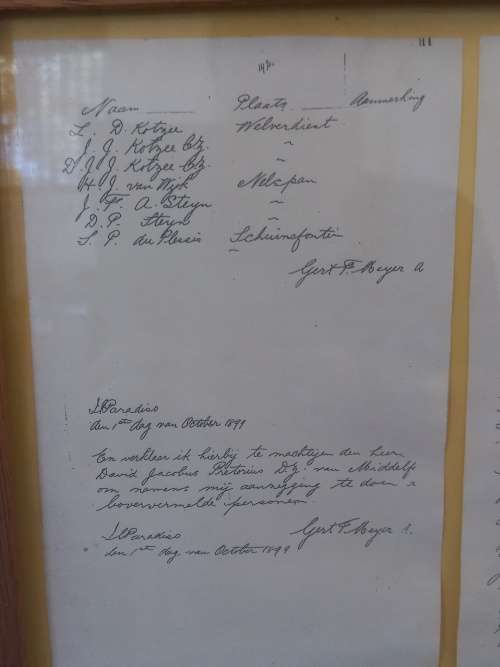 81
Naam Plaats Aanmerking
L. D. Kotzee Welverdient
J. J. Kotzee Cz. "
D. J. J. Kotzee Cz. "
H. J. van Wyk Nelspan
J. F. A. Steyn "
D. P. Steyn "
S. P. du Plessis Schuinsfontein
Gert F. Meyer A
Il Paradiso
den 1ste dag van October 1899
En verkleer ik hierbij te machtigen den heer
David Jacobus Pretorius D.Z. van Middelf
om namens mij aanzegging te doen a
bovenvermelde personen.
Il Paradiso Gert F. Meyer A.
den 1ste dag van October 1899